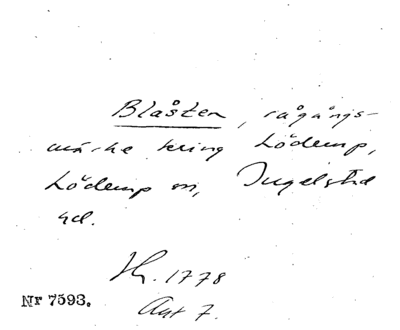 Blåsten, rågångs-
märke kring Löderup,
Löderup sn, Ingelstad
hd.
Hr. 1778
Akt 7.
Nr 7593.